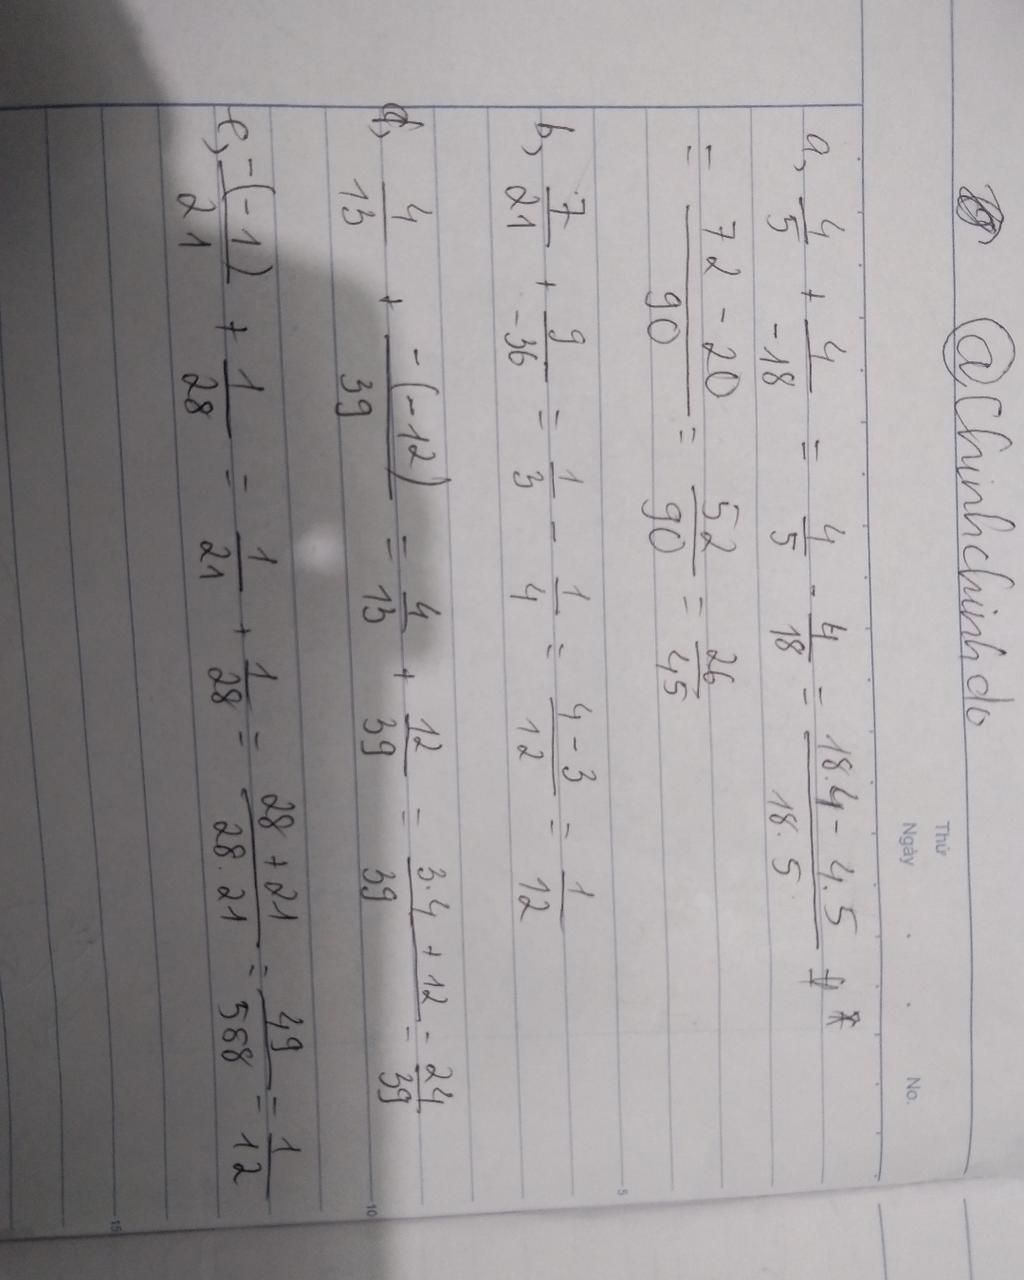 @Chinhchinhdo
Thứ
Ngày . . No.
a, 4/5 + 4/-18 = 4/5 - 4/18 = (18.4 - 4.5)/(18.5) *
= (72 - 20)/90 = 52/90 = 26/45
b, 7/21 + 9/-36 = 1/3 - 1/4 = (4 - 3)/12 = 1/12
5
d, 4/13 + -(-12)/39 = 4/13 + 12/39 = (3.4 + 12)/39 = 24/39
10
e, -(-1)/21 + 1/28 = 1/21 + 1/28 = (28 + 21)/(28.21) = 49/588 = 1/12
15